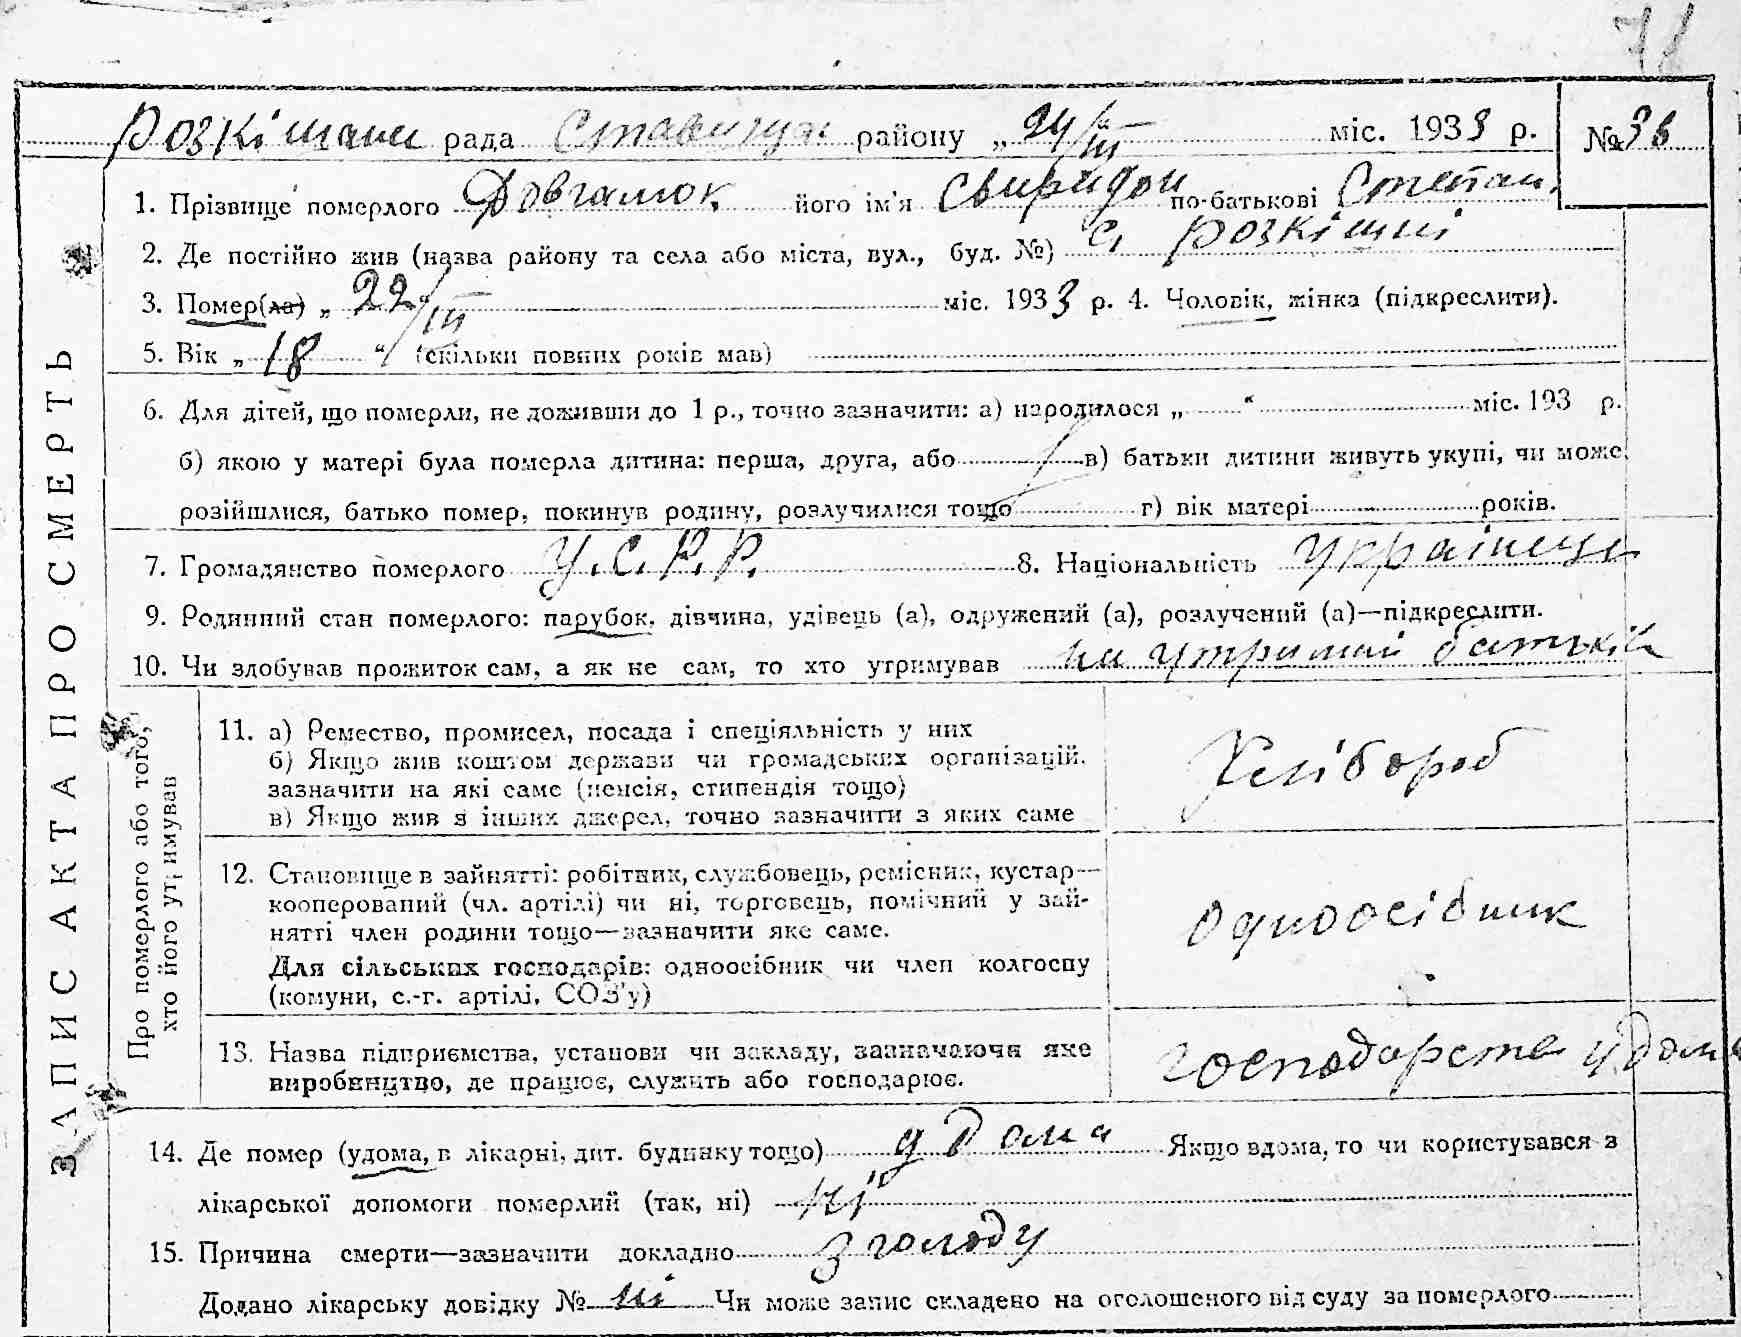 71
Розкішани рада Ставищан району „24/III міс. 1933 р. № 36
1. Прізвище померлого Довгалюк його ім'я Свиридон по-батькові Степан.
2. Де постійно жив (назва району та села або міста, вул., буд. №) с. Розкішні
3. Помер(ла) „22/III“ міс. 1933 р. 4. Чоловік, жінка (підкреслити).
5. Вік „18“ (скільки повних років мав)
6. Для дітей, що померли, не доживши до 1 р., точно зазначити: а) народилося „ “ міс. 193 р.
б) якою у матері була померла дитина: перша, друга, або в) батьки дитини живуть укупі, чи може
розійшлися, батько помер, покинув родину, розлучилися тощо г) вік матері років.
7. Громадянство померлого У.С.Р.Р. 8. Національність Українець
9. Родинний стан померлого: парубок, дівчина, удівець (а), одружений (а), розлучений (а)—підкреслити.
10. Чи здобував прожиток сам, а як не сам, то хто утримував на утриман батьків
ЗАПИС АКТА ПРО СМЕРТЬ
Про померлого або того,
хто його утримував
11. а) Ремество, промисел, посада і спеціяльність у них
б) Якщо жив коштом держави чи громадських організацій,
зазначити на які саме (пенсія, стипендія тощо)
в) Якщо жив з інших джерел, точно зазначити з яких саме
Хлібороб
12. Становище в зайнятті: робітник, службовець, ремісник, кустар—
кооперований (чл. артілі) чи ні, торговець, помічний у зай-
нятті член родини тощо—зазначити яке саме.
Для сільських господарів: одноосібник чи член колгоспу
(комуни, с.-г. артілі, СОЗ'у)
одноосібник
13. Назва підприємства, установи чи закладу, зазначаючи яке
виробництво, де працює, служить або господарює.
господарство удома
14. Де помер (удома, в лікарні, дит. будинку тощо) удома Якщо вдома, то чи користувався з
лікарської допомоги померлий (так, ні) ні
15. Причина смерти—зазначити докладно з голоду
Додано лікарську довідку № ні Чи може запис складено на оголошеного від суду за померлого